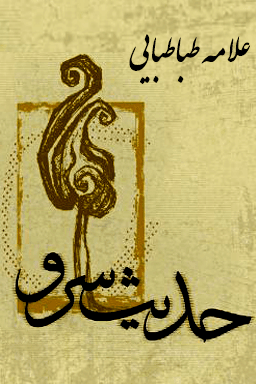 علامه طباطبایی
حدیث سرو